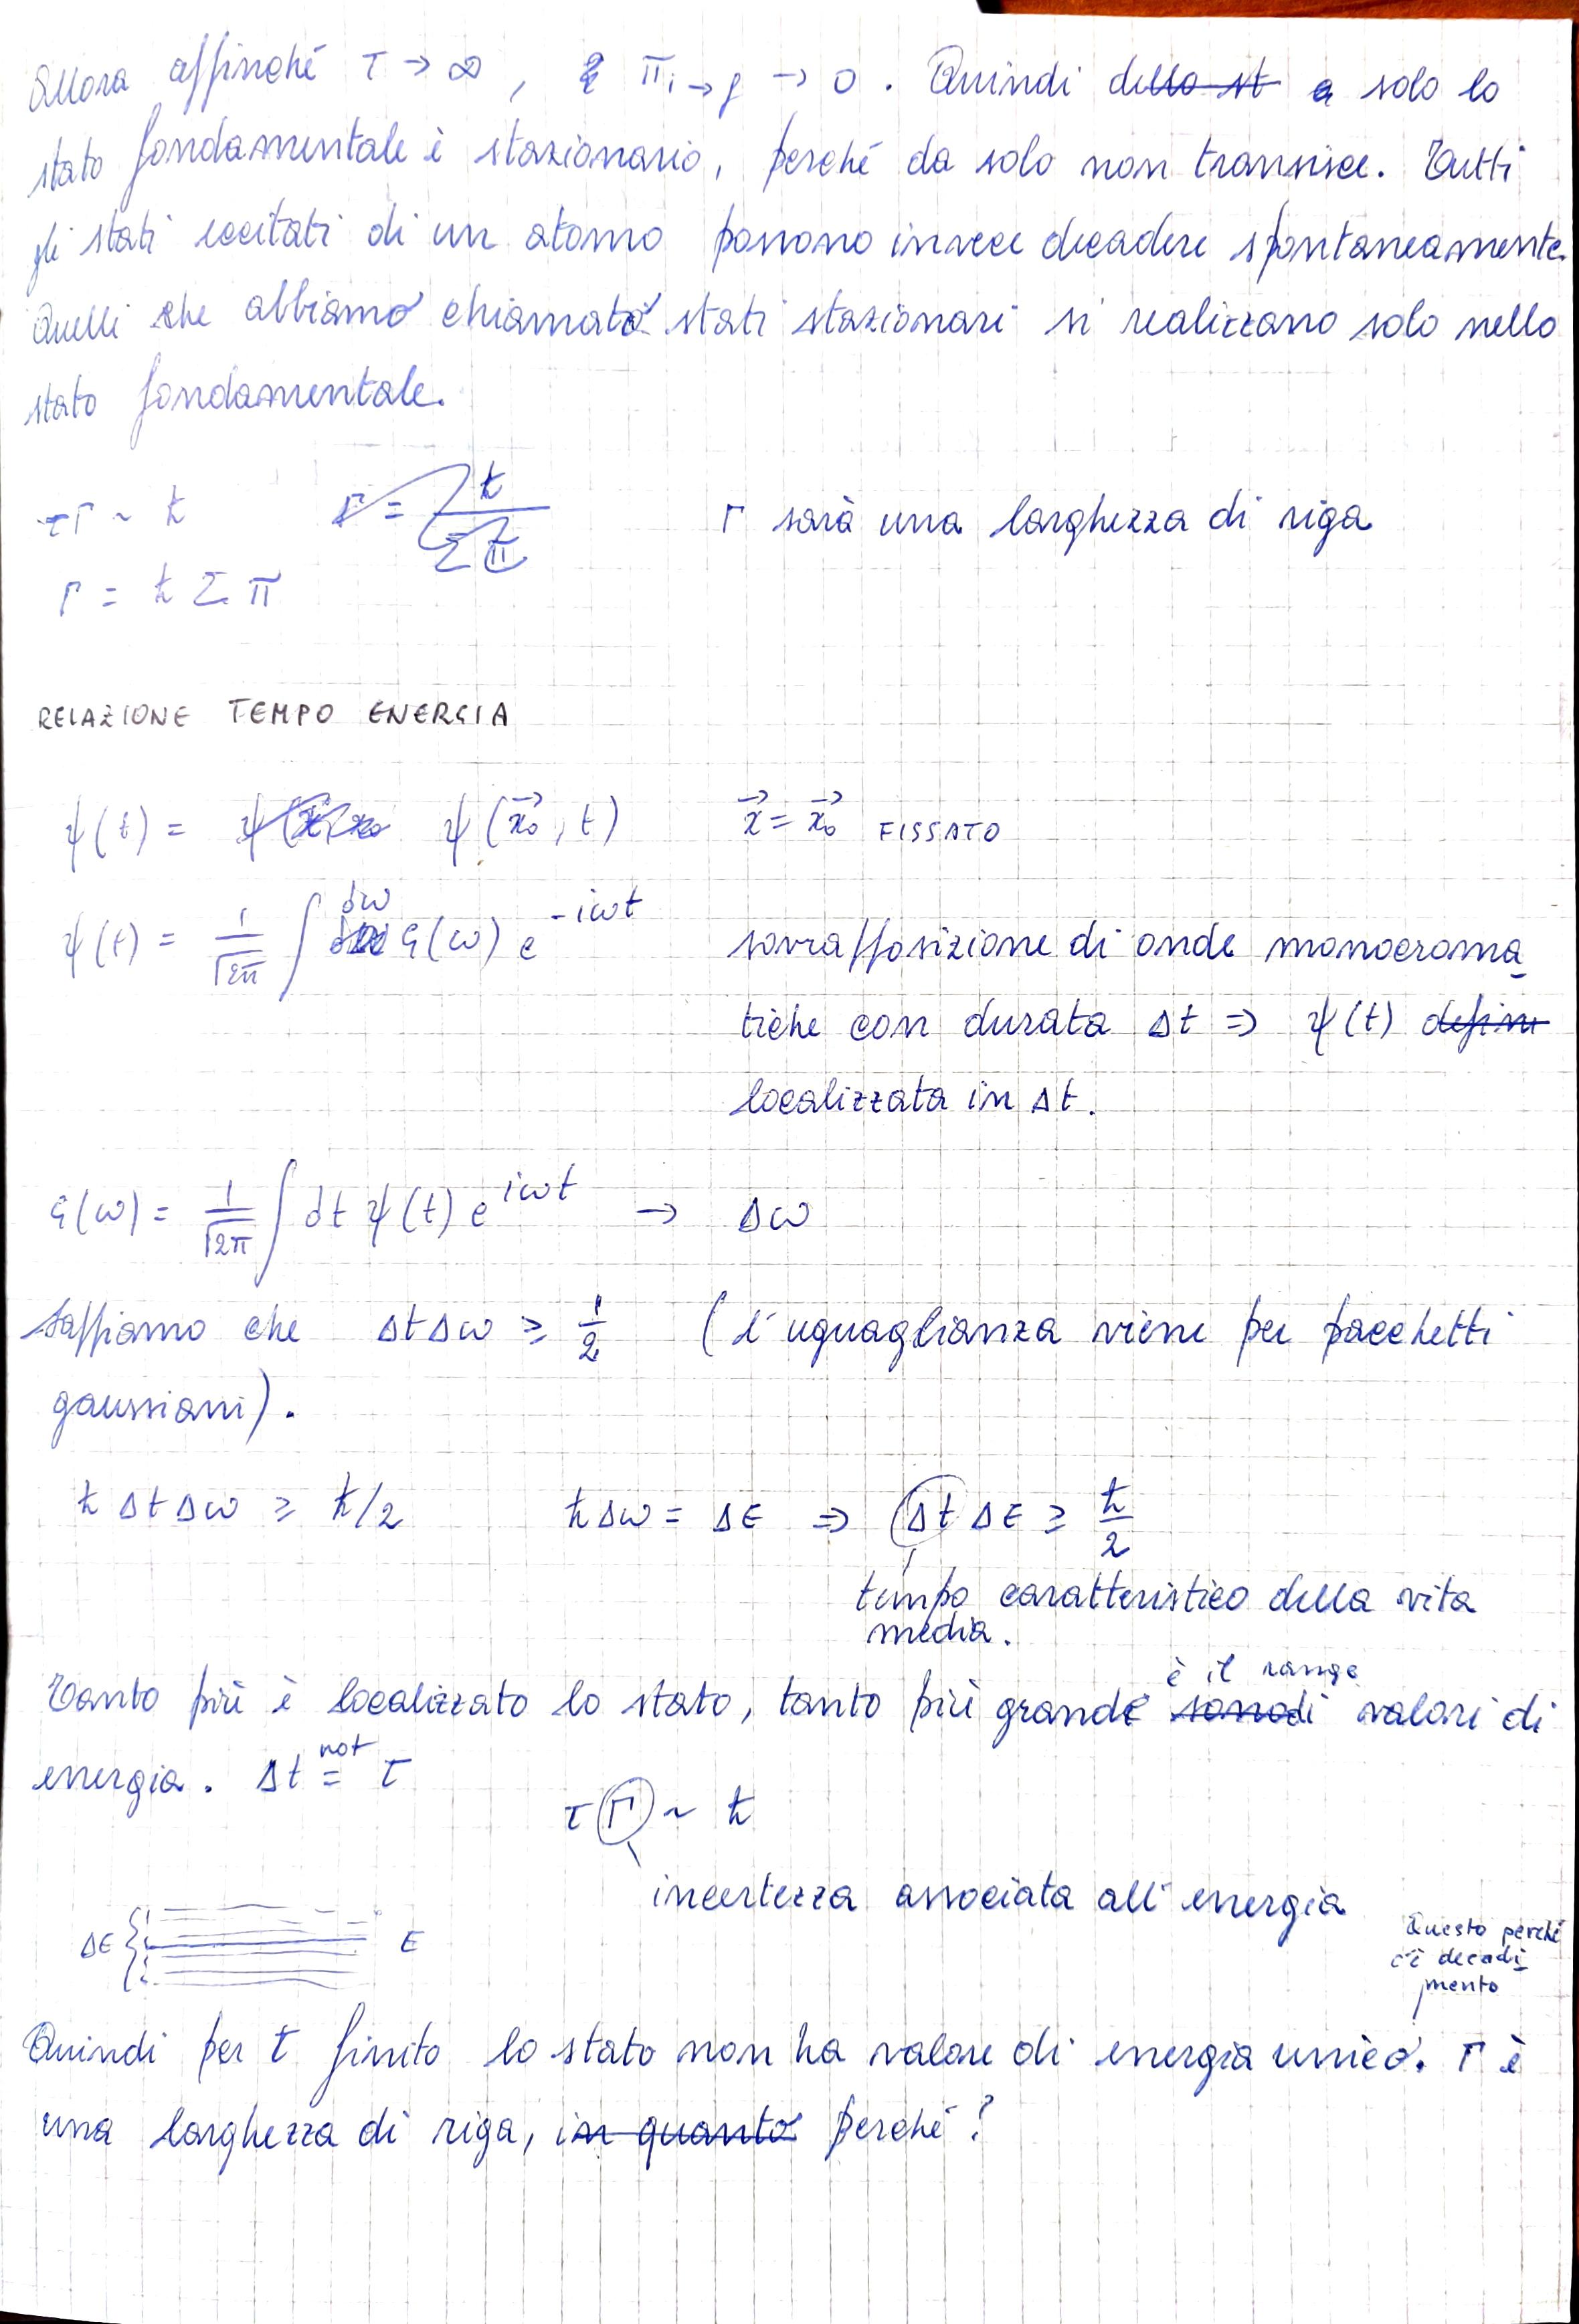 Allora affinché τ → ∞ , Π i→f → 0 . Quindi dello st solo lo
stato fondamentale è stazionario, perché da solo non transisce. Tutti
gli stati eccitati di un atomo possono invece decadere spontaneamente.
Quelli che abbiamo chiamato stati stazionari si realizzano solo nello
stato fondamentale.
τΓ ~ ħ Γ = ħ / Σ Π Γ sarà una larghezza di riga
Γ = ħ Σ Π
RELAZIONE TEMPO ENERGIA
ψ(t) = ψ(x⃗₀, t) x⃗ = x⃗₀ FISSATO
ψ(t) = 1/√2π ∫ dω G(ω) e^-iωt sovrapposizione di onde monocroma
tiche con durata Δt ⇒ ψ(t) defini
localizzata in Δt.
G(ω) = 1/√2π ∫ dt ψ(t) e^iωt → Δω
Sappiamo che Δt Δω ≥ 1/2 (l'uguaglianza viene per pacchetti
gaussiani).
ħ Δt Δω ≥ ħ/2 ħΔω = ΔE ⇒ Δt ΔE ≥ ħ/2
tempo caratteristico della vita
media.
è il range
Tanto più è localizzato lo stato, tanto più grande sono di valori di
energia. Δt not= τ
τ Γ ~ ħ
incertezza associata all'energia
ΔE { E
Questo perché
c'è decadi
mento
Quindi per τ finito lo stato non ha valore di energia unico. Γ è
una larghezza di riga, in quanto perché?